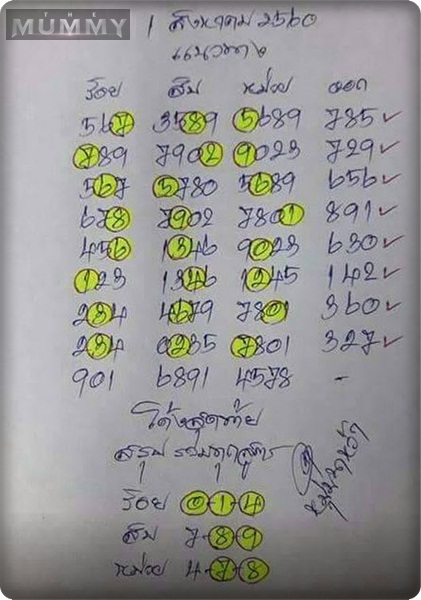 THE
MUMMY
1 สิงหาคม 2560
แนวทาง
ร้อย สิบ หน่วย ออก
567 3589 5689 785 ✓
789 7902 9023 729 ✓
567 5780 5689 656 ✓
678 7902 7801 891 ✓
456 1346 9023 630 ✓
123 1346 1245 142 ✓
234 4679 7801 360 ✓
234 0235 7801 327 ✓
901 6891 4578 -
โค้งสุดท้าย
สรุป รวมทุกสูตร
ร้อย 0-1-4
สิบ 7-8-9
หน่วย 4-7-8